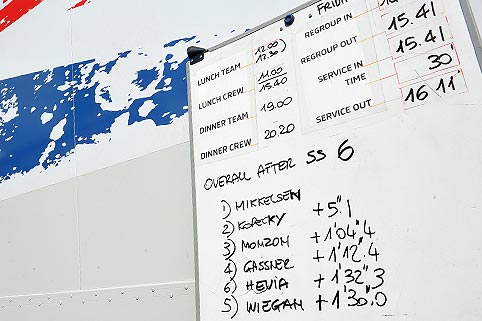 FRIDA
REGROUP IN 15.41
REGROUP OUT 15.41
SERVICE IN
TIME 30'
SERVICE OUT 16 11'
LUNCH TEAM 12.00 12.30)
LUNCH CREW 11.00 15.40
DINNER TEAM 19.00
DINNER CREW 20.20
OVERALL AFTER SS 6
1) MIKKELSEN
2) KOPECKY +5".1
3) MONZON +1'04".4
4) GASSNER +1'12".4
6) HEVIA +1'32".3
5) WIEGAN +1'30".0